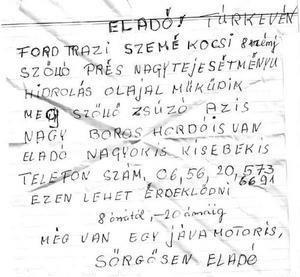 ELADÓ! TÚRKEVÉN
FORD TRAZI SZEMÉ KOCSI 8 szémj
SZŐLLŐ PRÉS NAGYTEJESÉTMÉNYU
HIDROLÁS OLAJAL MŰKŰDIK
MEG SZŐLLŐ ZSÚZÓ AZIS
NAGY BOROS HORDÓIS VAN
ELADÓ NAGYOKIS KISEBEKIS
TELEFON SZÁM, 06,56,20,573
6691
EZEN LEHET ÉRDEKLŐDNI
8 órától,-20 óráig
MÉG VAN EGY JÁVA MOTORIS,
SÖRGŐSEN ELADÓ